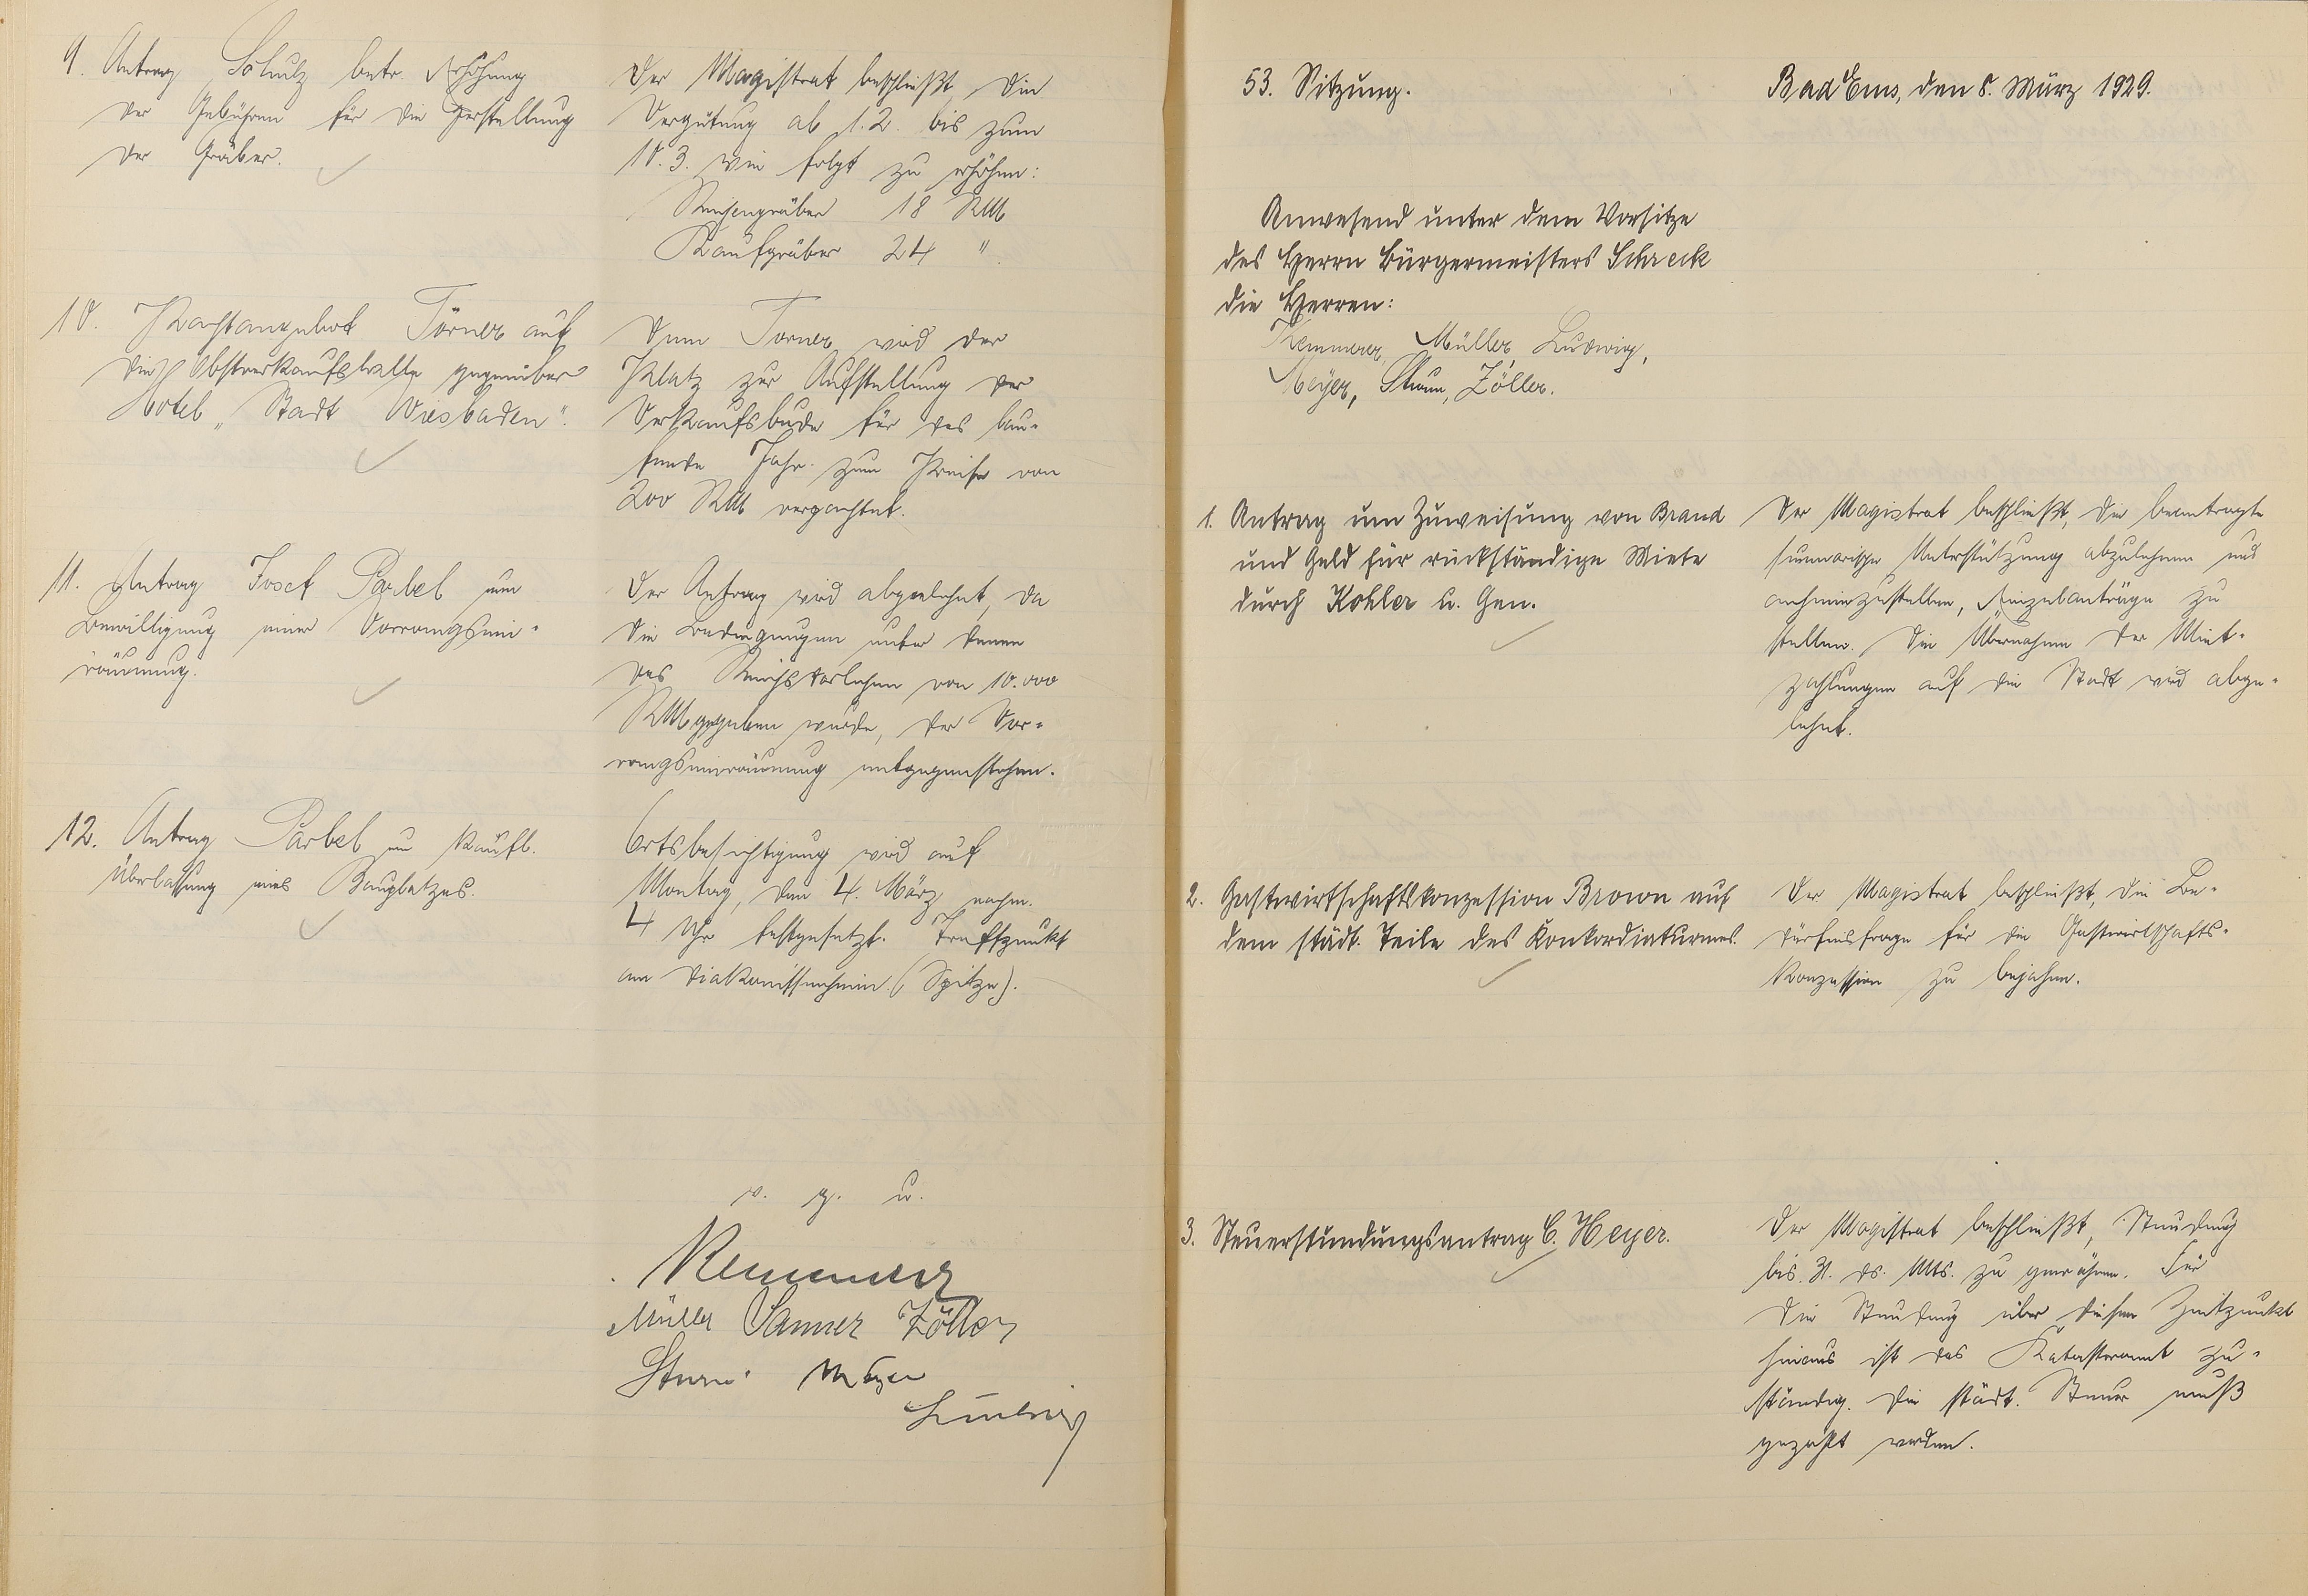 9. Antrag Schulz betr. Erhöhung
der Gebühren für die Herstellung
der Gräber.
Der Magistrat beschließt, die
Vergütung ab 1.2. bis zum
10.3. wie folgt zu erhöhen:
Reihengräber 18 RM
Kaufgräber 24 "
10. Pachtangebot Törner auf
die Obstverkaufshalle gegenüber
Hotel „Stadt Wiesbaden".
Dem Törner wird der
Platz zur Aufstellung der
Verkaufsbude für das lau-
fende Jahr zum Preise von
200 RM verpachtet.
11. Antrag Josef Parbel um
Bewilligung einer Vorrangsein-
räumung.
Der Antrag wird abgelehnt, da
die Bedingungen unter denen
das Reichsdarlehen von 10.000
RM gegeben wurde, der Vor-
rangseinräumung entgegenstehen.
12. Antrag Parbel um käufl.
Überlassung eines Bauplatzes.
Ortsbesichtigung wird auf
Montag, den 4. März nachm.
4 Uhr festgesetzt. Treffpunkt
am Diakonissenheim (Spitze).
v. g. u.
Kemmerer
Müller Sanner Zöller
Sturm Meyer
Ludwig
53. Sitzung.
Bad Ems, den 8. März 1929.
Anwesend unter dem Vorsitze
des Herrn Bürgermeisters Schreck
die Herren:
Kemmerer, Müller, Ludwig,
Meyer, Sturm, Zöller.
1. Antrag um Zuweisung von Brand
und Geld für rückständige Miete
durch Kohler u. Gen.
Der Magistrat beschließt, die beantragte
summarische Unterstützung abzulehnen und
anheimzustellen, Einzelanträge zu
stellen. Die Übernahme der Miet-
zahlungen auf die Stadt wird abge-
lehnt.
2. Gastwirtschaftskonzession Brown auf
dem städt. Teile des Konkordiaturmes.
Der Magistrat beschließt, die Be-
dürfnisfrage für die Gastwirtschafts-
konzession zu bejahen.
3. Steuerstundungsantrag C. Heyer.
Der Magistrat beschließt, Stundung
bis 31. ds. Mts. zu gewähren. Für
die Stundung über diesen Zeitpunkt
hinaus ist das Katasteramt zu-
ständig. Die städt. Steuer muß
gezahlt werden.